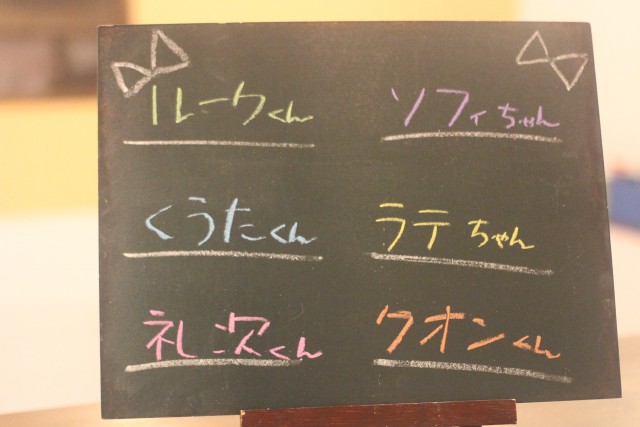 ルークくん
ソフィちゃん
くうたくん
ラテちゃん
礼次くん
クオンくん